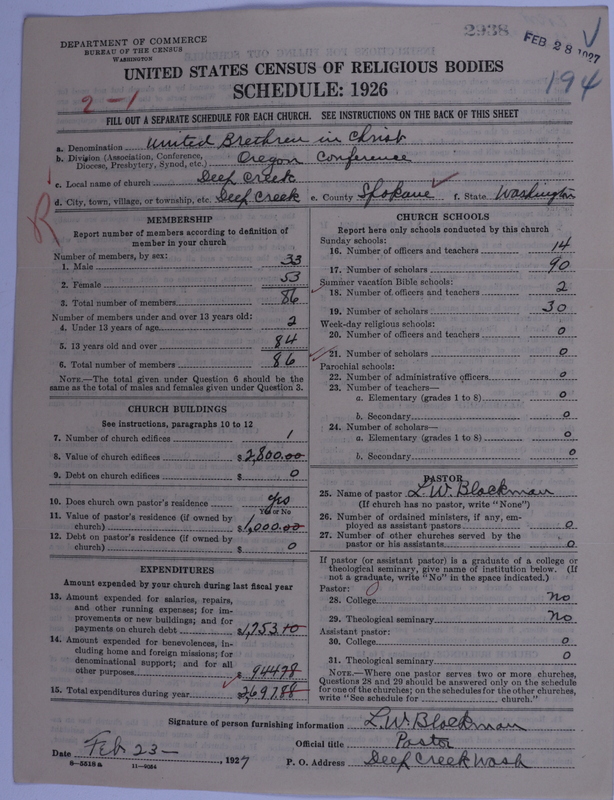 DEPARTMENT OF COMMERCE
BUREAU OF THE CENSUS
WASHINGTON
2938
FEB 28 1927
194
UNITED STATES CENSUS OF RELIGIOUS BODIES
SCHEDULE: 1926
2-1
FILL OUT A SEPARATE SCHEDULE FOR EACH CHURCH. SEE INSTRUCTIONS ON THE BACK OF THIS SHEET
a. Denomination United Brethren in Christ
b. Division (Association, Conference, Diocese, Presbytery, Synod, etc.) Oregon Conference
c. Local name of church Deep Creek
d. City, town, village, or township, etc. Deep Creek e. County Spokane f. State Washington
R
MEMBERSHIP
Report number of members according to definition of
member in your church
Number of members, by sex:
1. Male 33
2. Female 53
3. Total number of members 86
Number of members under and over 13 years old:
4. Under 13 years of age 2
5. 13 years old and over 84
6. Total number of members 86
NOTE.—The total given under Question 6 should be the
same as the total of males and females given under Question 3.
CHURCH BUILDINGS
See instructions, paragraphs 10 to 12
7. Number of church edifices 1
8. Value of church edifices $2,800.00
9. Debt on church edifices $ 0
10. Does church own pastor's residence Yes
Yes or No
11. Value of pastor's residence (if owned by
church) $1,000.00
12. Debt on pastor's residence (if owned by
church) $ 0
EXPENDITURES
Amount expended by your church during last fiscal year
13. Amount expended for salaries, repairs,
and other running expenses; for im-
provements or new buildings; and for
payments on church debt $1,753.10
14. Amount expended for benevolences, in-
cluding home and foreign missions; for
denominational support; and for all
other purposes $ 944.78
15. Total expenditures during year 2697.88
CHURCH SCHOOLS
Report here only schools conducted by this church
Sunday schools:
16. Number of officers and teachers 14
17. Number of scholars 90
Summer vacation Bible schools:
18. Number of officers and teachers 2
19. Number of scholars 30
Week-day religious schools:
20. Number of officers and teachers 0
21. Number of scholars 0
Parochial schools:
22. Number of administrative officers 0
23. Number of teachers—
a. Elementary (grades 1 to 8) 0
b. Secondary 0
24. Number of scholars—
a. Elementary (grades 1 to 8) 0
b. Secondary 0
PASTOR
25. Name of pastor L. W. Blackman
(If church has no pastor, write "None")
26. Number of ordained ministers, if any, em-
ployed as assistant pastors 0
27. Number of other churches served by the
pastor or his assistants 0
If pastor (or assistant pastor) is a graduate of a college or
theological seminary, give name of institution below. (If
not a graduate, write "No" in the space indicated.)
Pastor:
28. College No
29. Theological seminary No
Assistant pastor:
30. College 0
31. Theological seminary 0
NOTE.—Where one pastor serves two or more churches,
Questions 28 and 29 should be answered only on the schedule
for one of the churches; on the schedules for the other churches,
write "See schedule for church."
Signature of person furnishing information L. W. Blackman
Official title Pastor
Date Feb 23—, 1927 P. O. Address Deep Creek Wash
8—5518 a 11—9034